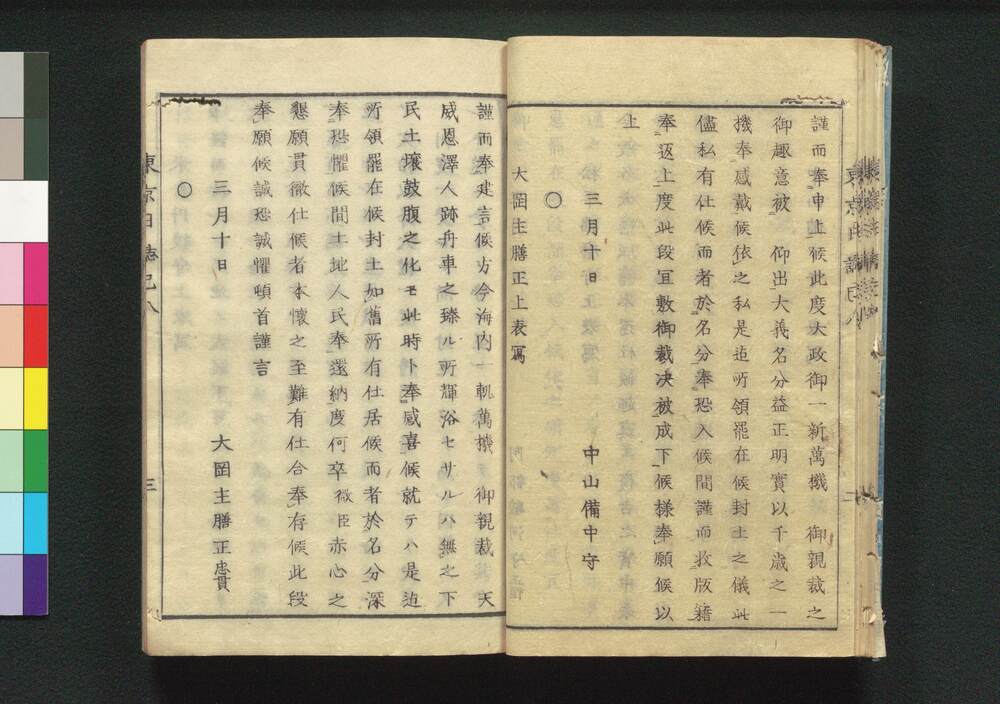 謹而奉申上候此度大政御一新萬機 御親裁之
御趣意被 仰出大義名分益正明實以千歳之一
機奉感戴候依之私是迄所領罷在候封土之儀此
儘私有仕候而者於名分奉恐入候間謹而收版籍
奉返上度此段宜敷御裁决被成下候様奉願候以
上
三月十日 中山備中守
○
大岡主膳正上表寫
謹而奉建言候方今海内一軌萬機 御親裁天
威恩澤人跡舟車之臻ル所輝浴セサルハ無之下
民土壤鼓腹之化モ此時ト奉感喜候就テハ是迄
所領罷在候封土如舊所有仕居候而者於名分深
奉恐懼候間土地人民奉還納度何卒微臣赤心之
懇願貫徹仕候者本懷之至難有仕合奉存候此段
奉願候誠恐誠懼頓首謹言
三月十日 大岡主膳正忠貫
○
東京日誌己八
三